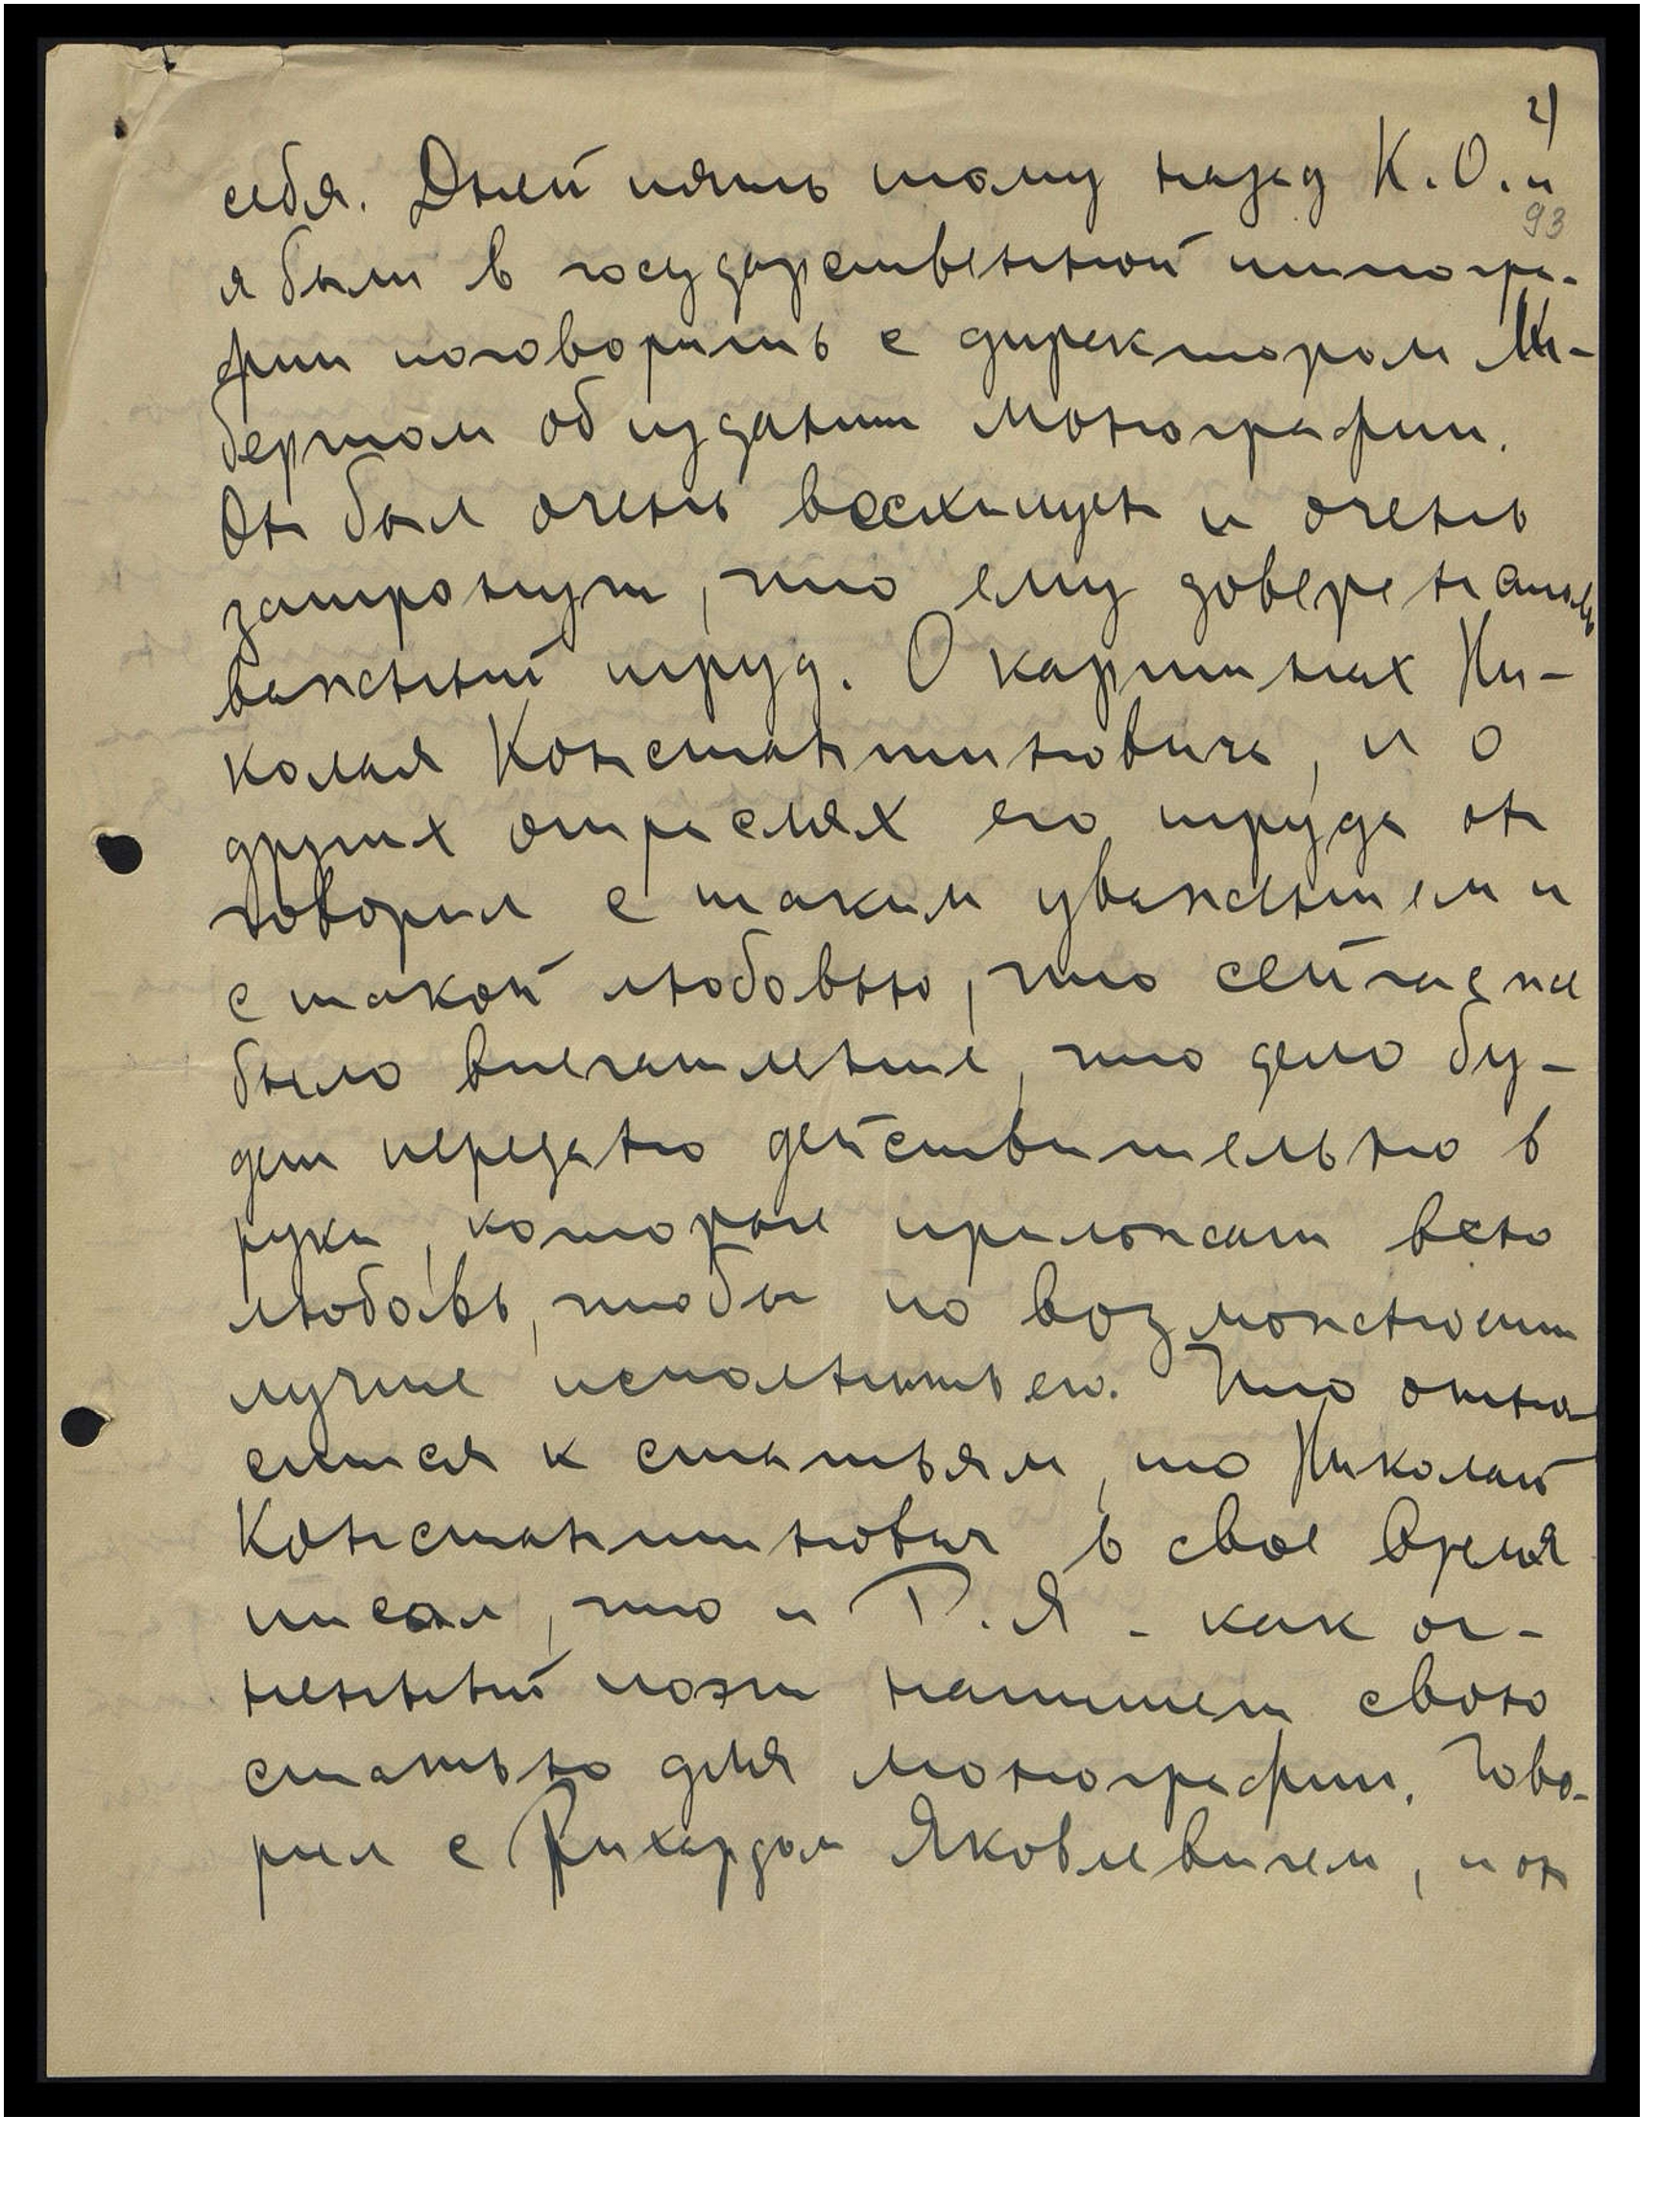 2)
себя. Дней пять тому назад К.О. и
93
я были в государственной типогра-
фии поговорить с директором Ми-
бертом об издании монографии.
Он был очень восхищен и очень
затронут, что ему доверен столь
важный труд. О картинах Ни-
колая Константиновича, и о
других отраслях его труда он
говорил с таким уважением и
с такой любовью, что сейчас же
было впечатление, что дело бу-
дет передано действительно в
руки, которые приложат всю
любовь, чтобы по возможности
лучше исполнить его. Что отно-
сится к статьям, то Николай
Константинович в свое время
писал, что и Р.Я. - как ог-
ненный поэт напишет свою
статью для монографии. Гово-
рил с Рихардом Яковлевичем, и он